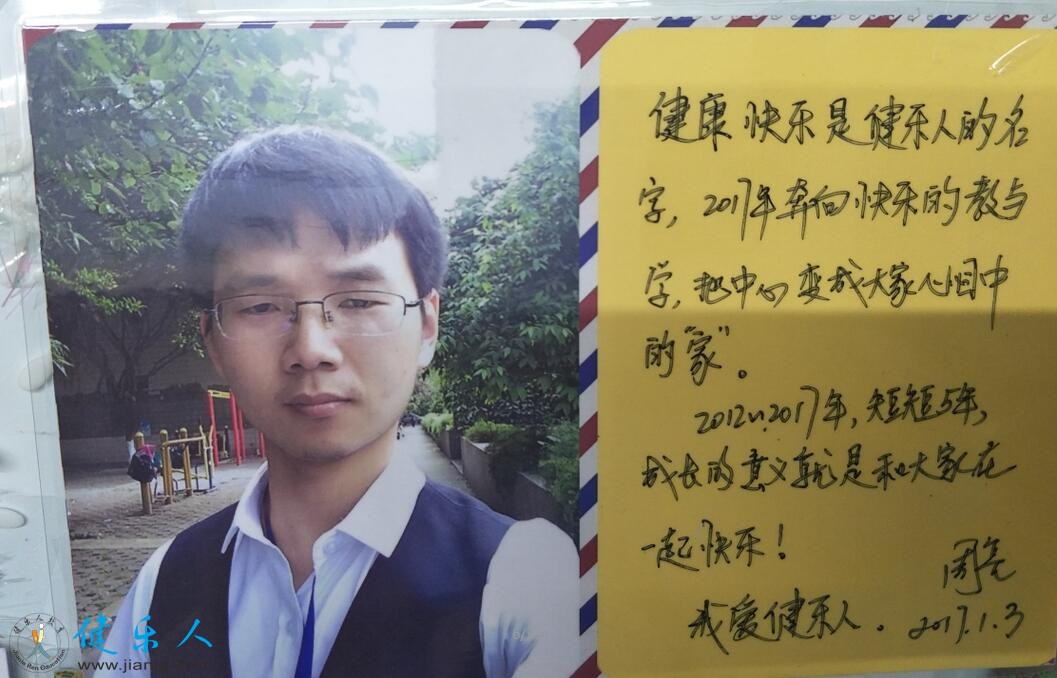 健康快乐是健乐人的名
字，2017年奔向快乐的教与
学，把中心变成大家心目中
的“家”。
2012~2017年，短短5年，
成长的意义就是和大家在
一起快乐！
周亮
我爱健乐人．2017.1.3
健乐人
www.jian